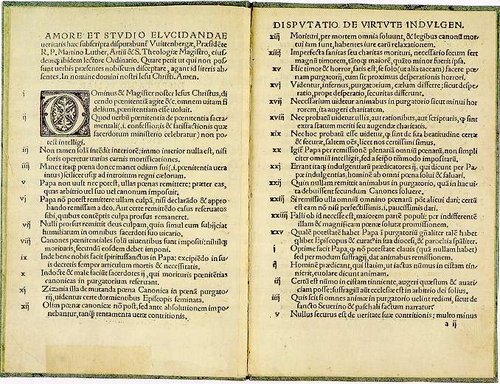 AMORE ET STVDIO ELVCIDANDAE
ueritatis hæc subscripta disputabunt̃ Vuittenbergæ, Præsidẽte
R. P. Martino Luther, Artiũ & S. Theologiæ Magistro, eius-
demq̃ ibidem lectore Ordinario. Quare petit ut qui non pos-
sunt uerbis præsentes nobiscum disceptare, agant id literis ab-
sentes. In nomine domini nostri Iesu Christi. Amen.
i DOminus & Magister noster Iesus Christus, di-
cendo pœnitentiã agite &c. omnem uitam fi-
delium, pœnitentiam esse uoluit.
ij Quod uerbũ pœnitentia de pœnitentia sacra-
mentali, .i. confessionis & satisfactionis quæ
sacerdotum ministerio celebratur) non po-
test intelligi.
iij Non tamen solã intẽdit interiorẽ: immo interior nulla est, nisi
foris operetur uarias carnis mortificationes.
iiij Manet itaq̃ pœna donec manet odium sui, (.i. pœnitentia uera
intus) scilicet usq̃ ad introitum regni cælorum.
v Papa non uult nec potest, ullas pœnas remittere: præter eas,
quas arbitrio uel suo uel canonum imposuit,
vi Papa nõ potest remittere ullam culpã, nisi declarãdo & appro-
bando remissam a deo, Aut certe remittẽdo casus reseruatos
sibi, quibus contẽptis culpa prorsus remaneret.
vij Nulli prorsus remittit deus culpam, quin simul eum subijciat
humiliatum in omnibus sacerdoti suo uicario.
viij Canones pœnitentiales solũ uiuentibus sunt impositi: nihilq̃
morituris, secundũ eosdem debet imponi.
ix Inde bene nobis facit spiritussanctus in Papa: excipiẽdo in su-
is decretis semper articulum mortis & necessitatis.
x Indocte & male faciũt sacerdotes ij, qui morituris pœnitẽtias
canonicas in purgatorium reseruant.
xj Zizania illa de mutanda pœna Canonica in pœnã purgato-
rij, uidentur certe dormientibus Episcopis seminata.
xij Olim pœnæ canonicæ nõ post, sed ante absolutionem impo-
nebantur, tanq̃ tentamenta ueræ contritionis.
DISPVTATIO DE VIRTVTE INDVLGEN.
xiij Morituri, per mortem omnia soluunt, & legibus canonũ mor-
tui iam sunt, habentes iure earũ relaxationem.
xiiij Imperfecta sanitas seu charitas morituri, necessario secum fert
magnũ timorem, tãtoq̃ maiorẽ, quãto minor fuerit ipsa.
xv Hic timor & horror, satis est, se solo (ut alia taceam) facere pœ-
nam purgatorij, cum sit proximus desperationis horrori.
xvi Videntur, infernus, purgatorium, cælum differre: sicut despe-
ratio, prope desperatio, securitas differunt.
xvij Necessarium uidetur animabus in purgatorio sicut minui hor-
rorem, ita augeri charitatem.
xviij Nec probatũ uidetur ullis, aut rationibus, aut scripturis, q̃ sint
extra statum meriti seu augendæ charitatis.
xix Nec hoc probatũ esse uidetur, q̃ sint de sua beatitudine certæ
& securæ, saltem oẽs, licet nos certissimi simus.
xx Igit̃ Papa per remissionẽ plenariã omniũ pœnarũ, non simpli
citer omniũ intelligit, sed a seipso tãtummodo impositarũ.
xxj Errant itaq̃ indulgentiarũ prædicatores ij, qui dicunt per Pa-
pæ indulgentias, hominẽ ab omni pœna solui & saluari.
xxij Quin nullam remittit animabus in purgatorio, quã in hac ui-
ta debuissent secundum Canones soluere.
xxiij Si remissio ulla omniũ omnino pœnarũ põt alicui dari; certũ
est eam nõ nisi perfectissimis, .i. paucissimis dari.
xxiiij Falli ob id necesse est, maiorem partẽ populi: per indifferentẽ
illam & magnificam pœnæ solutæ promissionem.
xxv Qualẽ potestatẽ habet Papa ĩ purgatoriũ gñaliter talẽ habet
quilibet Episcopus & curat9 in sua diocesi, & parochia spãliter.
i Optime facit Papa, q̃ nõ potestate clauis (quã nullam habet)
sed per modum suffragij, dat animabus remissionem.
ij Hominẽ prædicant, qui statim, ut iactus nũmus in cistam tinn-
ierit, euolare dicunt animam.
iij Certũ est nũmo in cistam tinniente, augeri quæstum & auari-
ciam posse; suffragiũ aũt ecclesiæ est in arbitrio dei solius.
iiij Quis scit si omnes animæ in purgatorio uelint redimi, sicut de
sancto Seuerino & paschali factum narratur
v Nullus securus est de ueritate suæ contritionis; multo minus
a ij